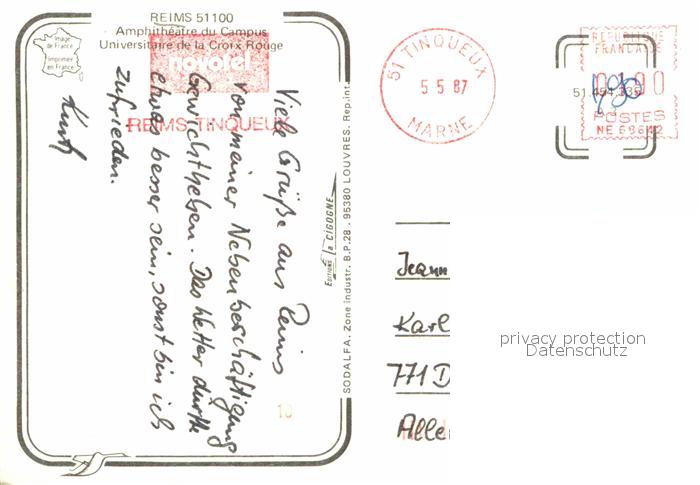 REIMS 51100
Amphithéatre du Campus
Universitaire de la Croix Rouge
Image
de France
Imprimée
en France
novotel
REIMS TINQUEUX
Viele Grüße aus Reims
von meiner Nebenbeschäftigung
Gewichtheben. Das Wetter dürfte
etwas besser sein, sonst bin ich
zufrieden.
Editions la CIGOGNE
SODALFA. Zone industr. B.P.28 - 95380 LOUVRES. Rep.int.
51 TINQUEUX
5 5 87
MARNE
REPUBLIQUE
FRANÇAISE
POSTES
Jeann
Karl
771 D
Alle
privacy protection
Datenschutz